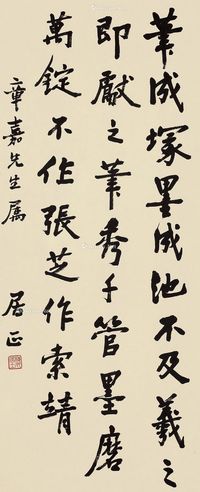 筆成塚墨成池不及羲之
即獻之筆秀千管墨磨
萬錠不作張芝作索靖
章嘉先生屬
居正